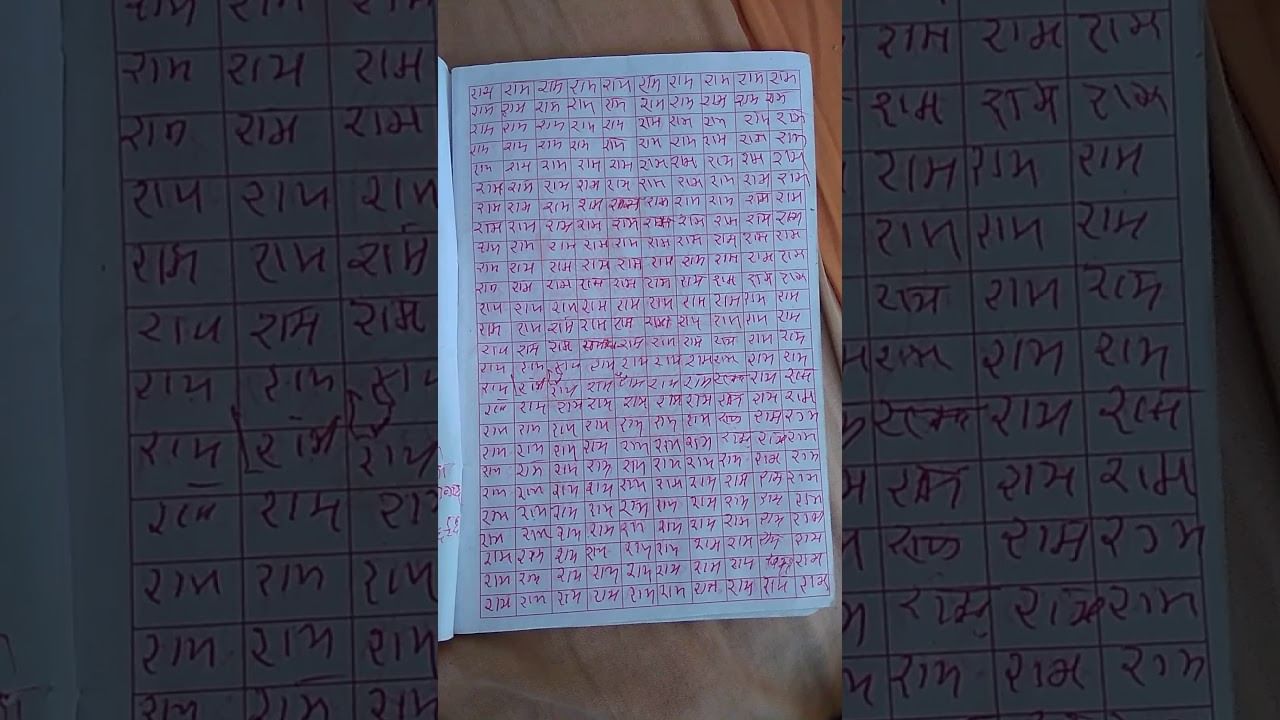 राम राम राम राम राम राम राम राम राम राम
राम राम राम राम राम राम राम राम राम राम
राम राम राम राम राम राम राम राम राम राम
राम राम राम राम राम राम राम राम राम राम
राम राम राम राम राम राम राम राम राम राम
राम राम राम राम राम राम राम राम राम राम
राम राम राम राम राम राम राम राम राम राम
राम राम राम राम राम राम राम राम राम राम
राम राम राम राम राम राम राम राम राम राम
राम राम राम राम राम राम राम राम राम राम
राम राम राम राम राम राम राम राम राम राम
राम राम राम राम राम राम राम राम राम राम
राम राम राम राम राम राम राम राम राम राम
राम राम राम राम राम राम राम राम राम
राम राम राम राम राम राम राम राम राम
राम राम राम राम राम राम राम राम राम
राम राम राम राम राम राम राम राम राम राम
राम राम राम राम राम राम राम राम राम
राम राम राम राम राम राम राम राम राम राम
राम राम राम राम राम राम राम राम राम राम
राम राम राम राम राम राम राम राम राम राम
राम राम राम राम राम राम राम राम राम राम
राम राम राम राम राम राम राम राम राम राम
राम राम राम राम राम राम राम राम राम राम
राम राम राम राम राम राम राम राम राम
राम राम राम राम राम राम राम राम राम राम